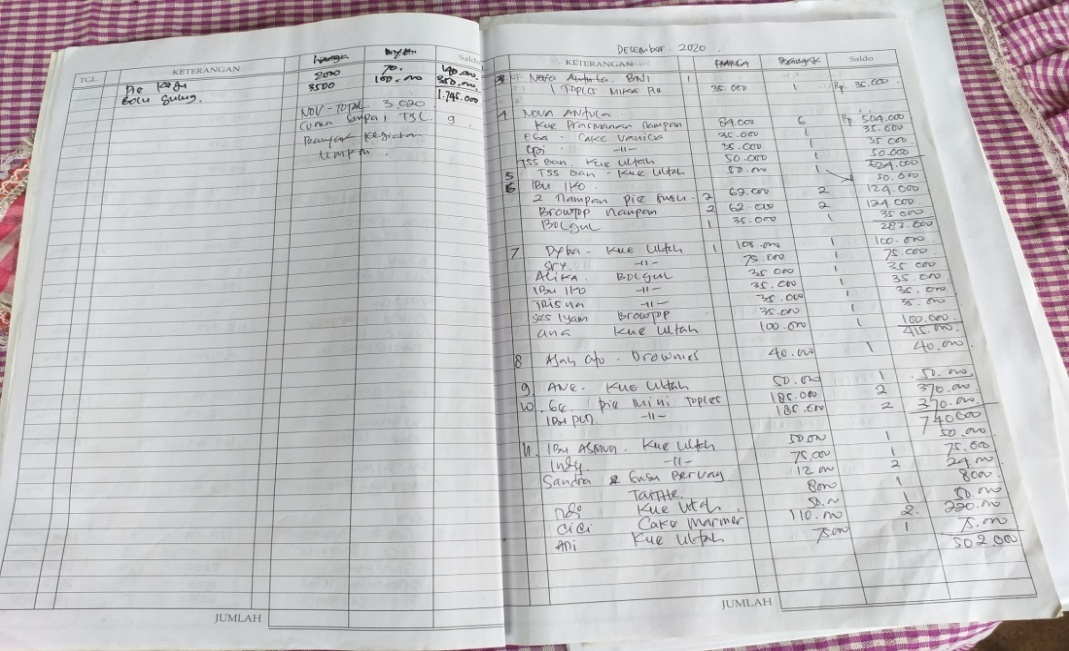 TGL KETERANGAN Harga Saldo
Pie Keju 2000 70. 140.000
Bolu Gulung. 3500 100.000 350.000
1.745.000
NOV - TOTAL 3.020
Cuma Sampai TGL 9
Banyak Kegiatan
December 2020
KETERANGAN HARGA Banyak Saldo
3 Nova Antula. BNI 1
1 Toples Mika Pie 35.000 1 Rp. 35.000
4 NOVA Antula
Kue Prasmanan Nampan 84.000 6 Rp 504.000
Ega - Cake Vanila 35.000 1 35.000
Upi -11- 35.000 1 35.000
TSS Ban. Kue Ultah 50.000 1 50.000
624.000
5 TSS Ban - Kue Ultah 50.000 1 50.000
6 IBu IKO
2 Nampan Pie Susu. 2 62.000 2 124.000
Browpop Nampan 2 62.000 2 124.000
Bolgul 1 35.000 1 35.000
283.000
7 Dyba - Kue Ultah 1 100.000 1 100.000
Sry. -11- 75.000 1 75.000
Alika. Bolgul 35.000 1 35.000
IBu IKO -11- 35.000 1 35.000
Trisna -11- 35.000 1 35.000
Iyam Browpop 35.000 1 35.000
ana Kue Ultah 100.000 1 100.000
415.000
8 Brownies 40.000 1 40.000
9 ANE. Kue Ultah 50.000 1 50.000
10. Pie Mini Toples 185.000 2 370.000
IBu -11- 185.000 2 370.000
740.000
11. IBu Kue Ultah 50.000 1 50.000
Indy. -11- 75.000 1 75.000
Sandra 12.000 2 24.000
8000 1 8000
Kue Ultah. 50.000 1 50.000
Cici Cake Marmer 110.000 2. 220.000
Ani Kue Ultah 75.000 1 75.000
502.000
JUMLAH
JUMLAH